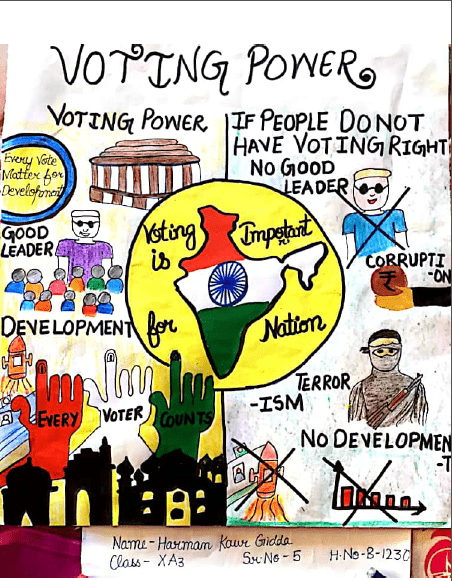 VOTING POWER
VOTING POWER
Every Vote
Matter for
Development
GOOD
LEADER
DEVELOPMENT
EVERY
VOTER
COUNTS
Voting
is
Impotant
for
Nation
IF PEOPLE DO NOT
HAVE VOTING RIGHT
NO GOOD
LEADER
CORRUPTI
-ON
₹
TERROR
-ISM
NO DEVELOPMEN
-T
Name - Harman Kaur Gidda
Class - XA3
Sr.No - 5
H.No-B-1230